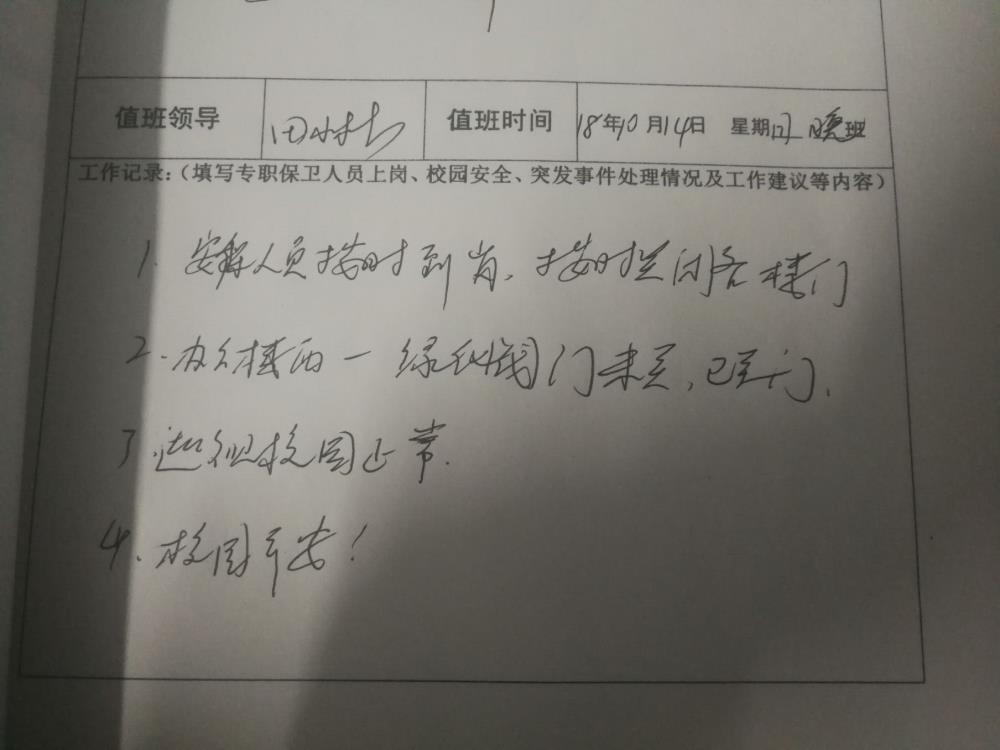 值班领导 田 值班时间 18年10月14日 星期日 晚班
工作记录:(填写专职保卫人员上岗、校园安全、突发事件处理情况及工作建议等内容)
1. 安保人员按时到岗,按时关闭各楼门
2. 办公楼西一 门未关,已关门.
3. 巡视校园正常.
4. 校园平安!